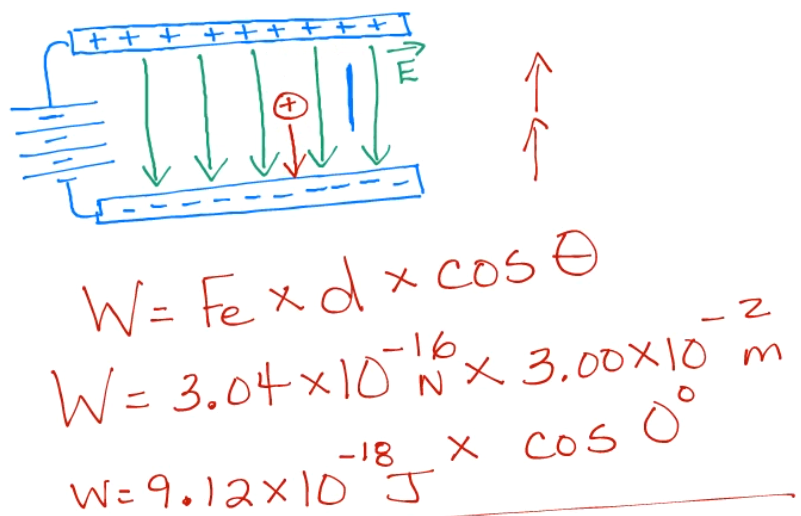 + + + + + + + + +
E
+
- - - - - - - - - -
W = Fe × d × cos θ
W = 3.04 × 10⁻¹⁶ N × 3.00 × 10⁻² m
× cos 0°
W = 9.12 × 10⁻¹⁸ J